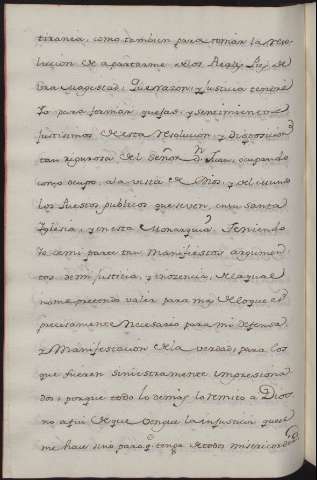 tirania, como tambien para tomar la reso-
lucion de apartarme de los Reales Pies de
Vra Magestad; Que razon, y Justicia tendre
Yo para formar quejas, y sentimientos
Justisimos de esta resolucion, y disposicion
tan rigurosa del Señor Dn. Juan, ocupando
como ocupo, a la vista de Dios, y del mundo
los Puestos publicos que se ven, en su Santa
Iglesia, y en esta Monarquia, teniendo
Yo de mi parte tan manifiestos argumen-
tos de mi Justicia, e inocencia, de la qual
no me pretendo valer para mas de lo que es
precisamente necesario para mi defensa,
y Manifestacion de la verdad, para los
que fueren siniestramente impresiona-
dos, porque todo lo demas lo remito a Dios
no a fin de que vengue la injusticia que se
me hace sino para q tenga de todos misericordia